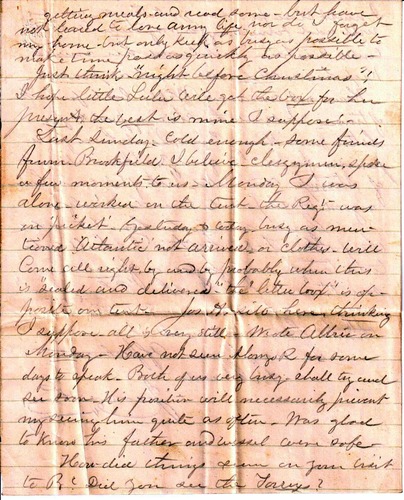 getting meals and read some - but have
not learned to love army life nor do I forget
my home - but only keep as busy as possible to
make time pass as quickly as possible -
Just think "night before Christmas"!
I hope little Lulie will get the box for her
present the best is mine I suppose -
Last Sunday. Cold enough - Some friends
from Brookfield I believe clergymen, spoke
a few moments to us - Monday I was
alone - worked in the tent the Reg't was
on "picket" Yesterday & today busy as men-
tioned 'Atlantic' not arrived or clothes - Will
Come all right by and by probably when this
is "sealed and delivered" "the letter box" is op-
posite our tent. Jos. here, thinking
I suppose all is very still - Wrote Abbie on
Monday - Have not seen Alonzo R for some
days to speak - Both of us very busy, shall try and
see soon - His position will necessarily prevent
my seeing him quite as often - Was glad
to know his father and vessel were safe -
How did things seem on your visit
to B? Did you see the Torreys?